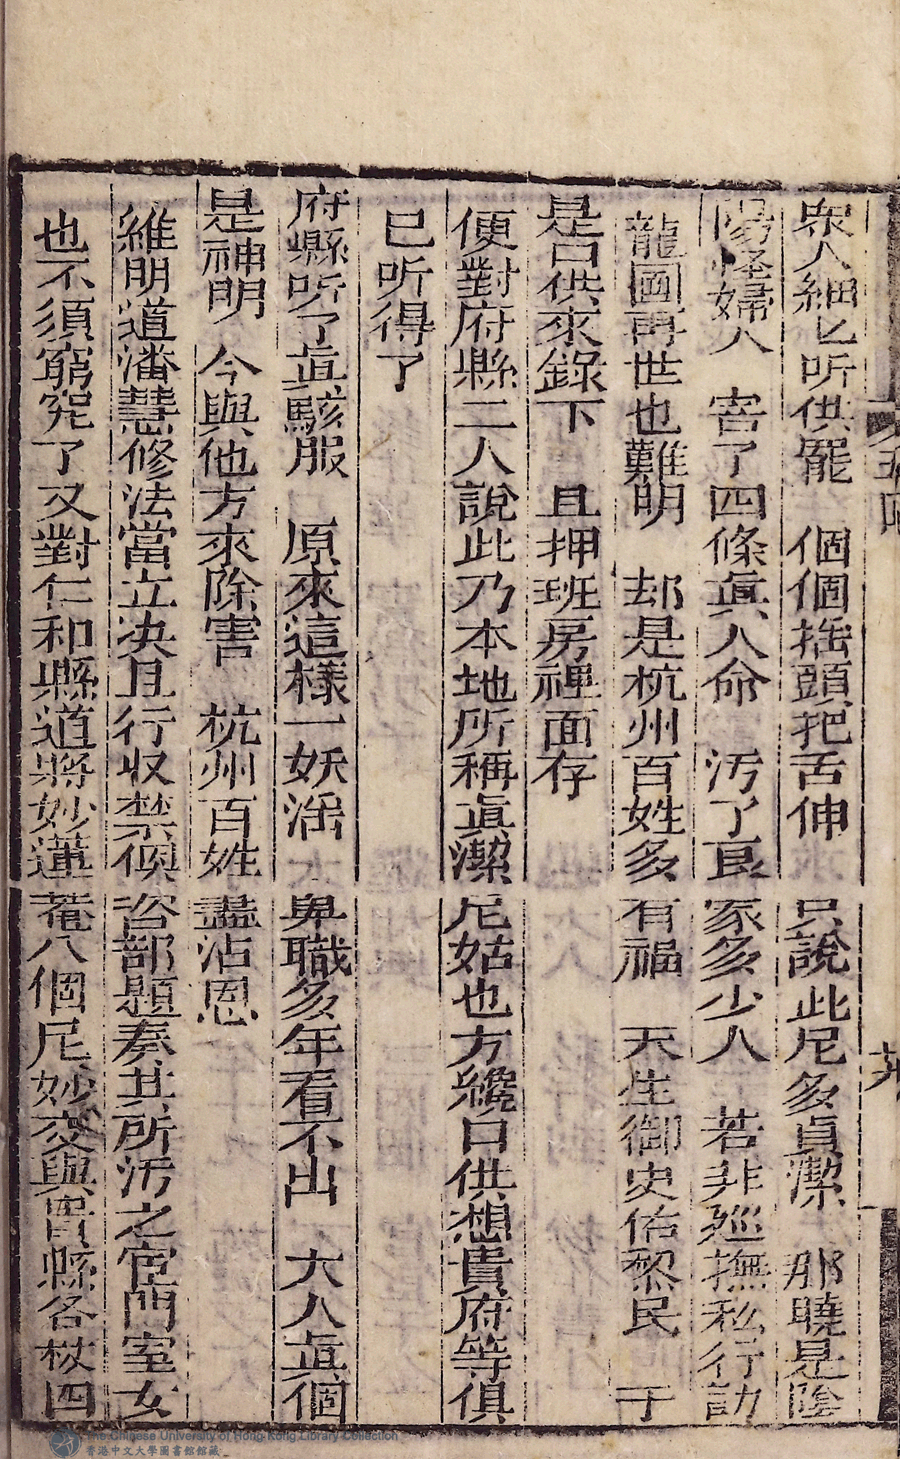 眾人細匕听供罷　個個揺頭把舌伸　只說此尼多貞潔　那曉是陰
陽怪婦人　害了四條真人命　汚了良家多少人　若非廵撫私行訪
龍圖再世也難明　却是杭州百姓多有福　天生御史佑黎民　于
是口供來錄下　且押班房裡面存
便對府縣二人說此乃本地所稱真潔尼姑也方纔口供想貴府等俱
已听得了
府縣听了真駭服　原來這樣一妖滛　卑職多年看不出　大人真個
是神明　今與他方來除害　杭州百姓盡沾恩
維明道潘慧修法當立决且行收禁俟咨部題奏其所汚之宦門室女
也不須窮究了又對仁和縣道將妙蓮菴八個尼妙交與貴縣各杖四
The Chinese University of Hong Kong Library Collection
香港中文大學圖書館館藏